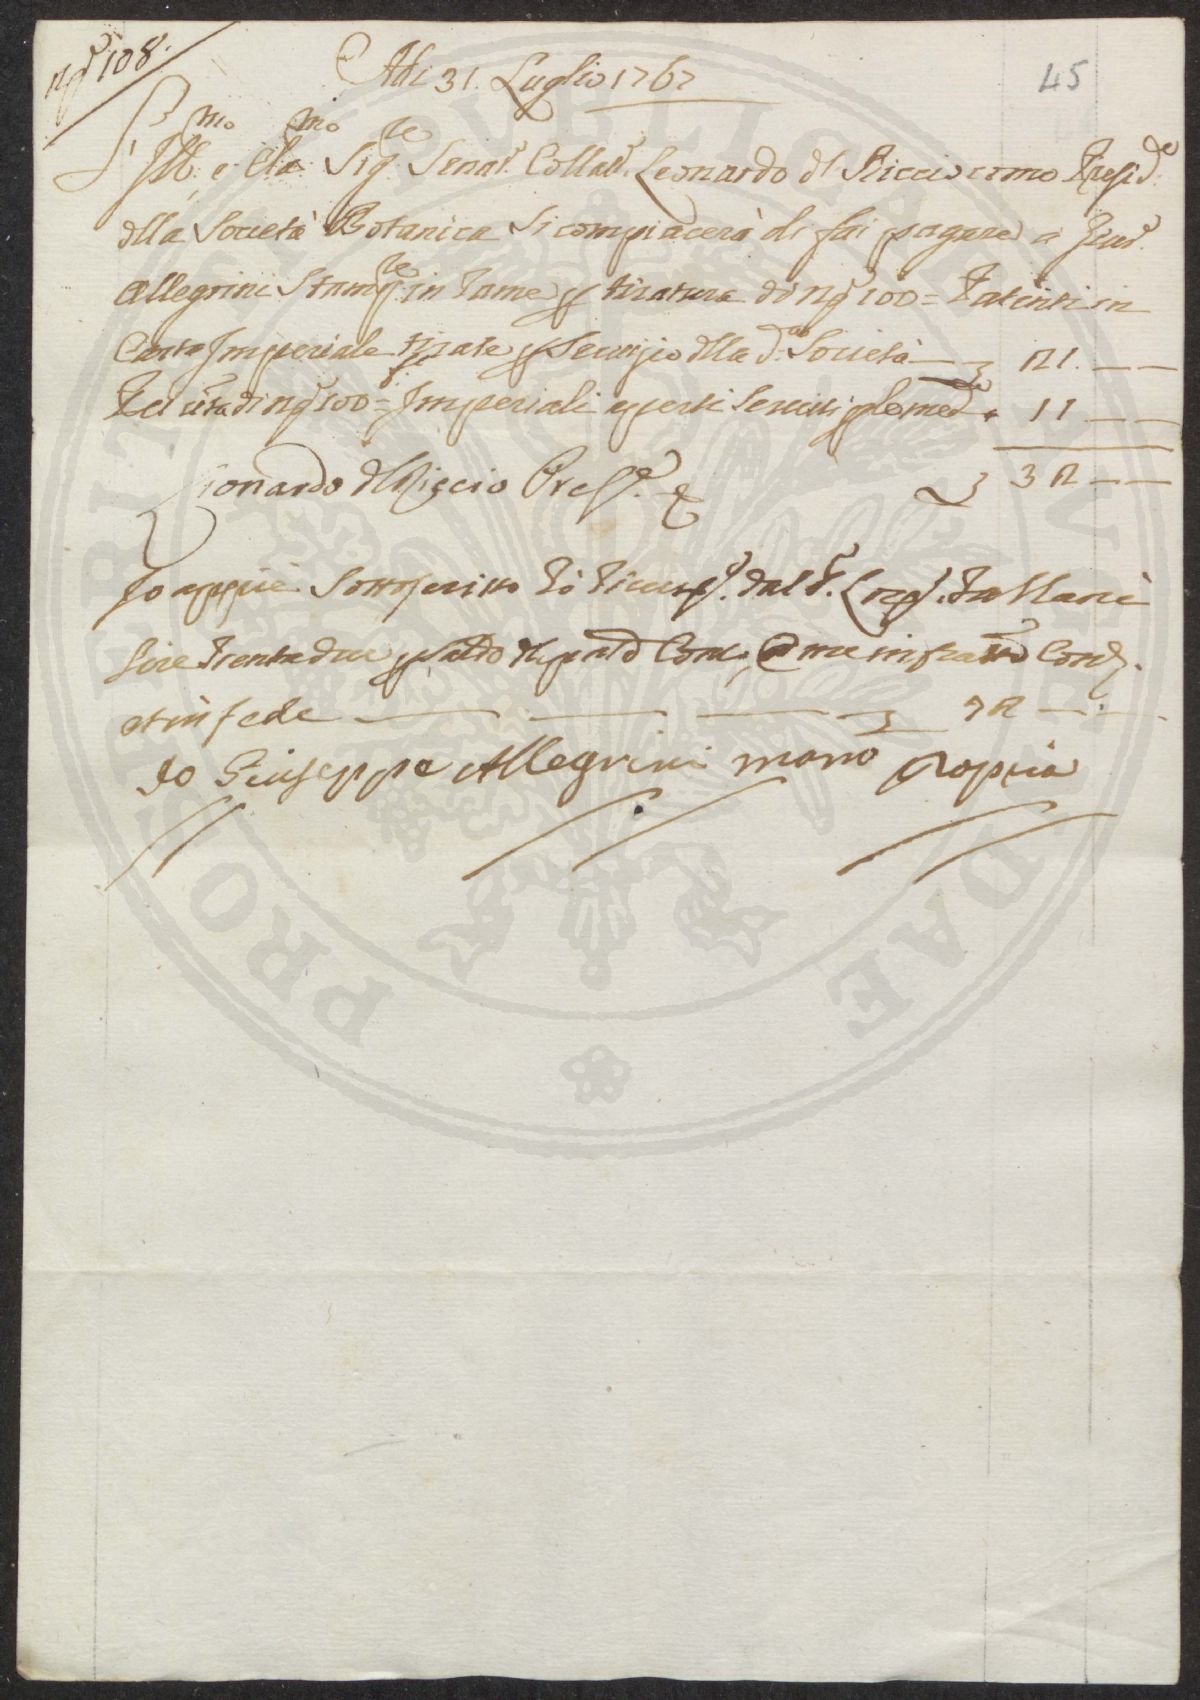 n.° 108.
Adi 31. Luglio 1767
45
S.r Ill.mo e Cla.mo Sig.re Senat.e Leonardo del Riccio como Presid.e
della Società Botanica Si compiacerà di far pagare a Gius.e
Allegrini Stamp.re in Rame p tiratura di n.° 100 = Patenti in
Carta Imperiale tirate p Servizio della d.a Società — 21. — —
n.° 100 = Imperiali aperti Serviti p le med.e 11 — —
Lionardo del Riccio Pres.e 32 — —
Io appiè Sottoscritto ò ricevuto dal S.r
lire trenta due p saldo del p.nte Conto, a me Cont.
et in fede — — — — 32 — —
Io Giuseppe Allegrini mano propria
PRO PUBLICA